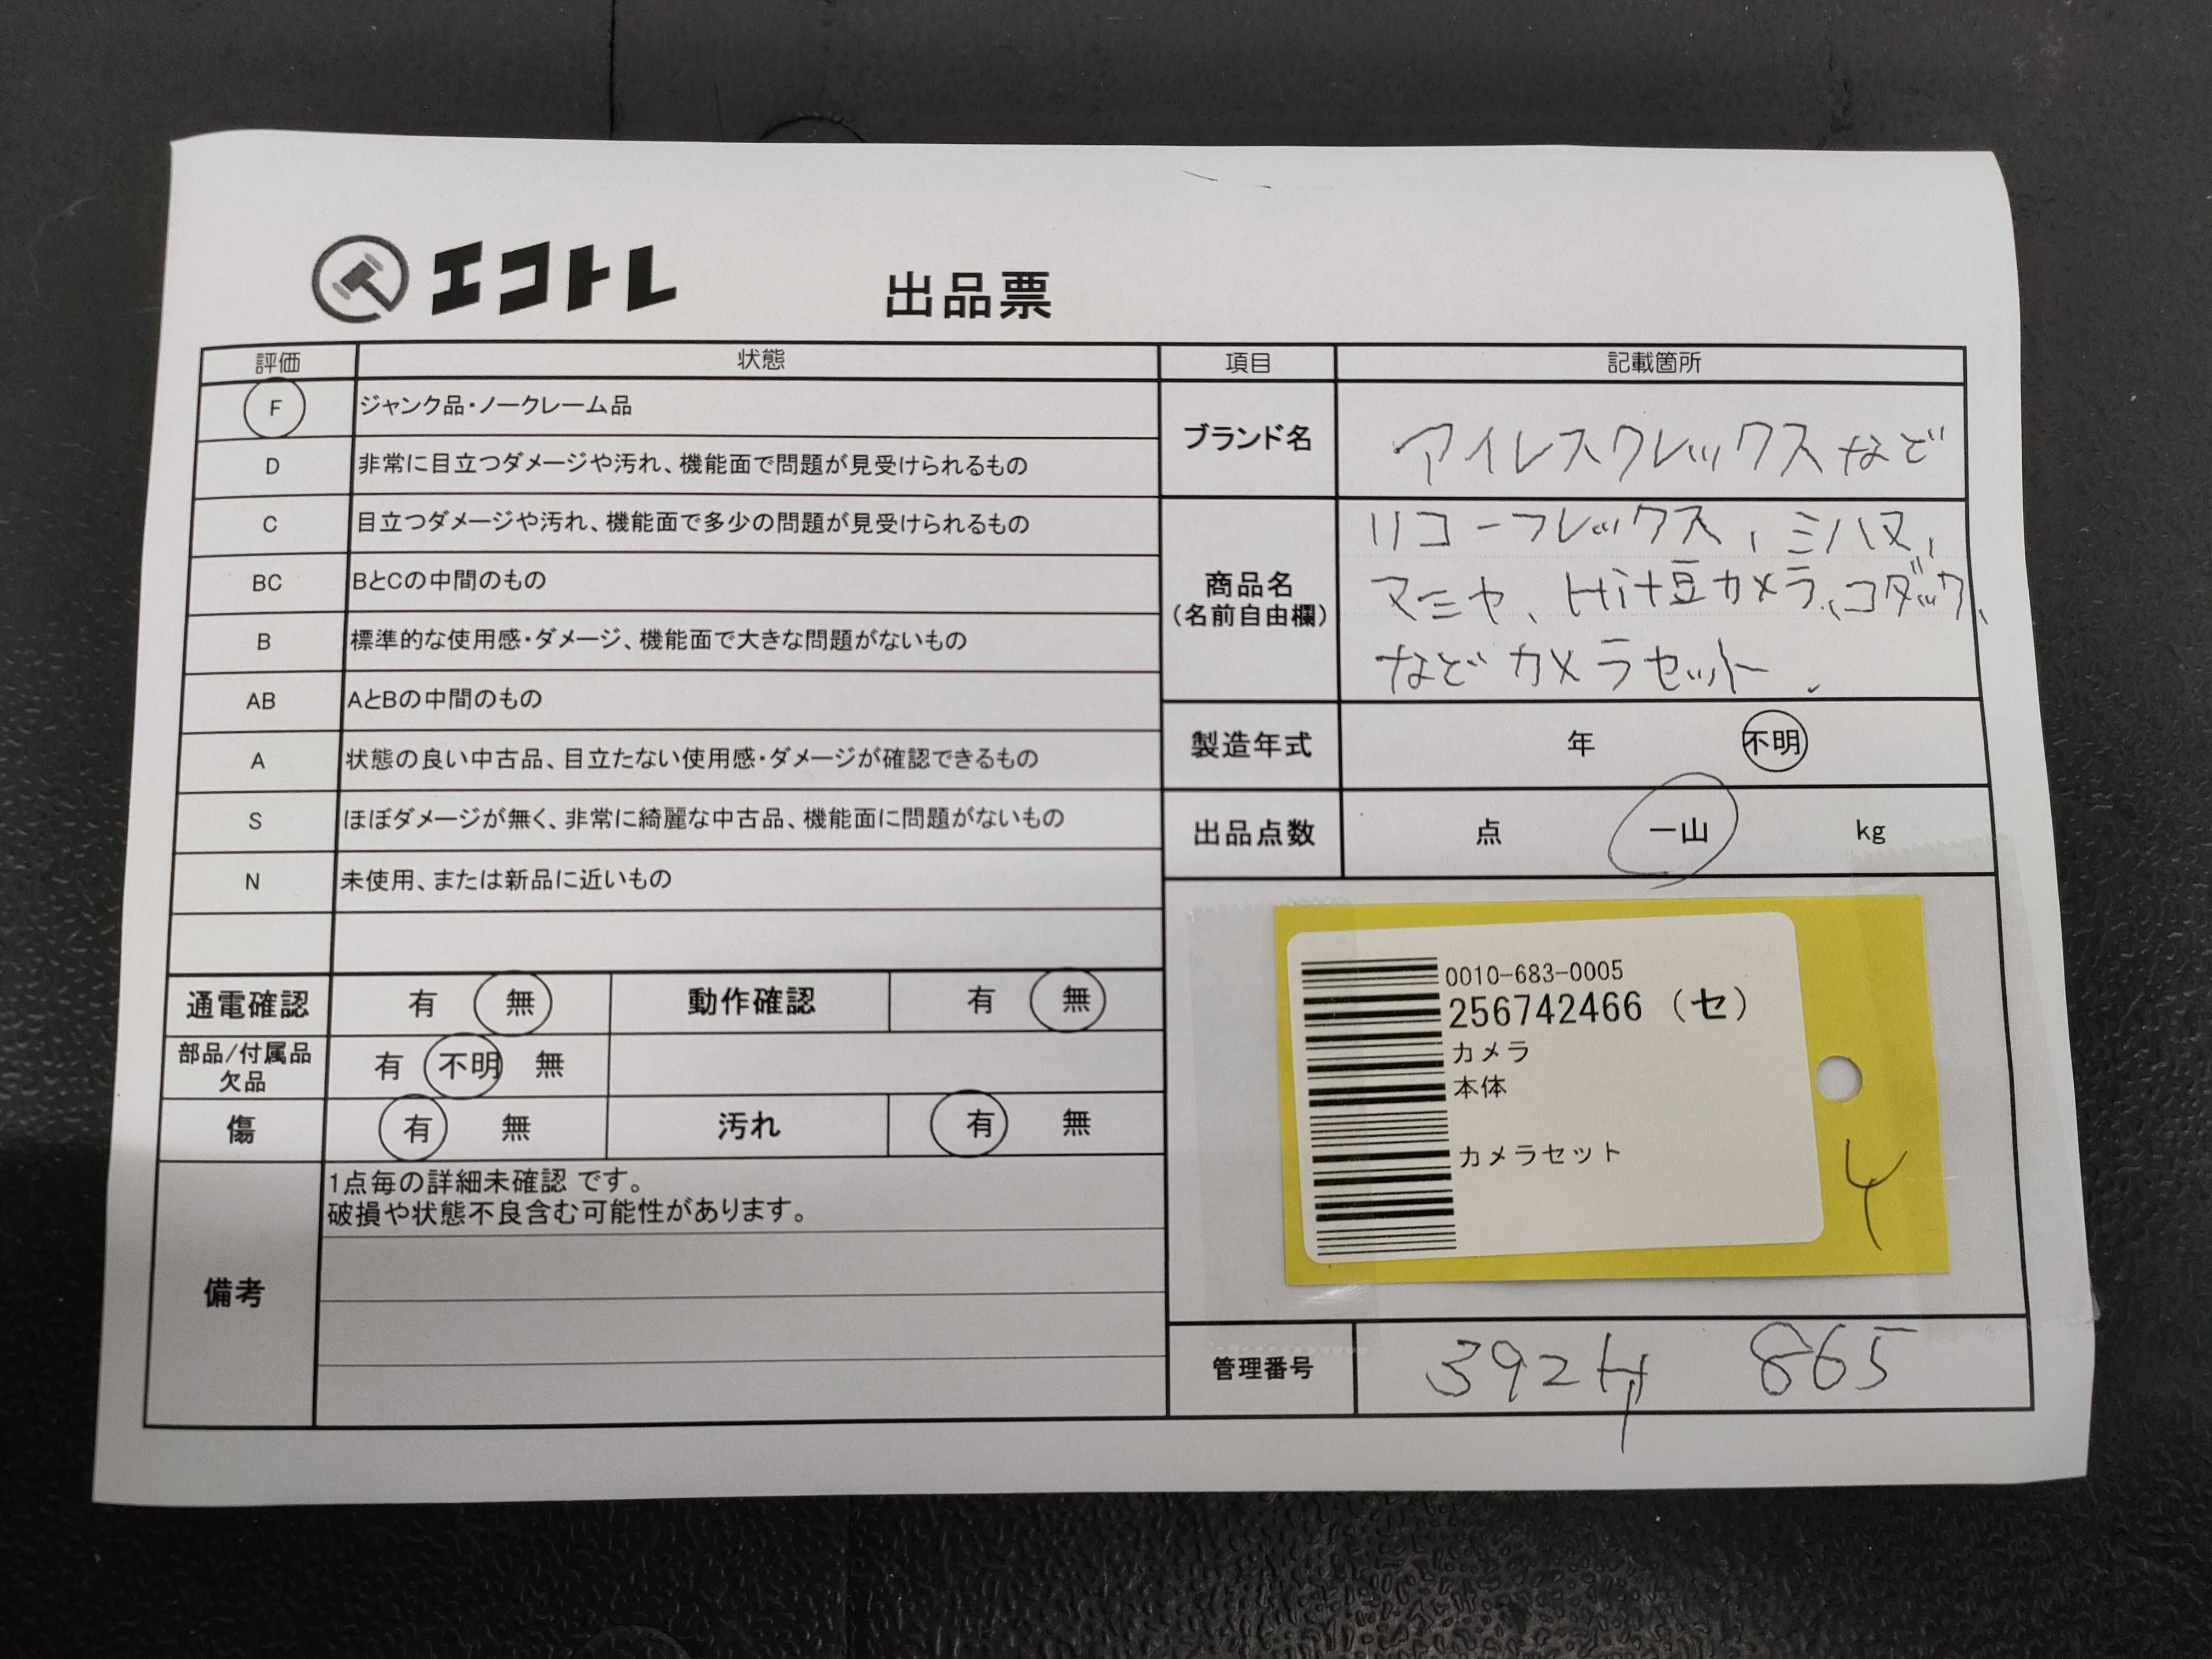 エコトレ
出品票
評価 状態
F ジャンク品・ノークレーム品
D 非常に目立つダメージや汚れ、機能面で問題が見受けられるもの
C 目立つダメージや汚れ、機能面で多少の問題が見受けられるもの
BC BとCの中間のもの
B 標準的な使用感・ダメージ、機能面で大きな問題がないもの
AB AとBの中間のもの
A 状態の良い中古品、目立たない使用感・ダメージが確認できるもの
S ほぼダメージが無く、非常に綺麗な中古品、機能面に問題がないもの
N 未使用、または新品に近いもの
通電確認 有 無 動作確認 有 無
部品/付属品
欠品 有 不明 無
傷 有 無 汚れ 有 無
備考
1点毎の詳細未確認 です。
破損や状態不良含む可能性があります。
項目 記載箇所
ブランド名 アイレスクレックスなど
商品名
(名前自由欄)
リコーフレックス、ミハマ、
マミヤ、Hit豆カメラ、コダック、
などカメラセット
製造年式 年 不明
出品点数 点 一山 kg
0010-683-0005
256742466 (セ)
カメラ
本体
カメラセット
管理番号 3924 865